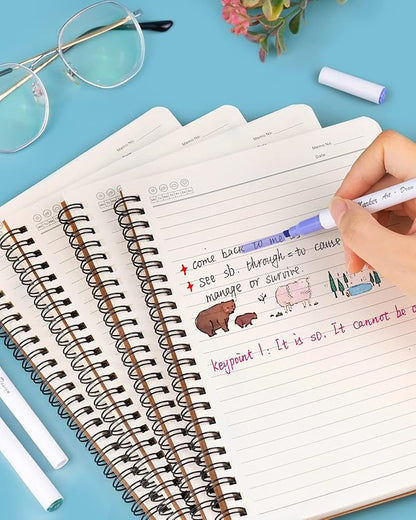 Memo No.
Memo No.
Memo No.
Memo No.
Date
come back to me
see sb. through = to cause
manage or survive.
keypoint 1: It is so. It cannot be o